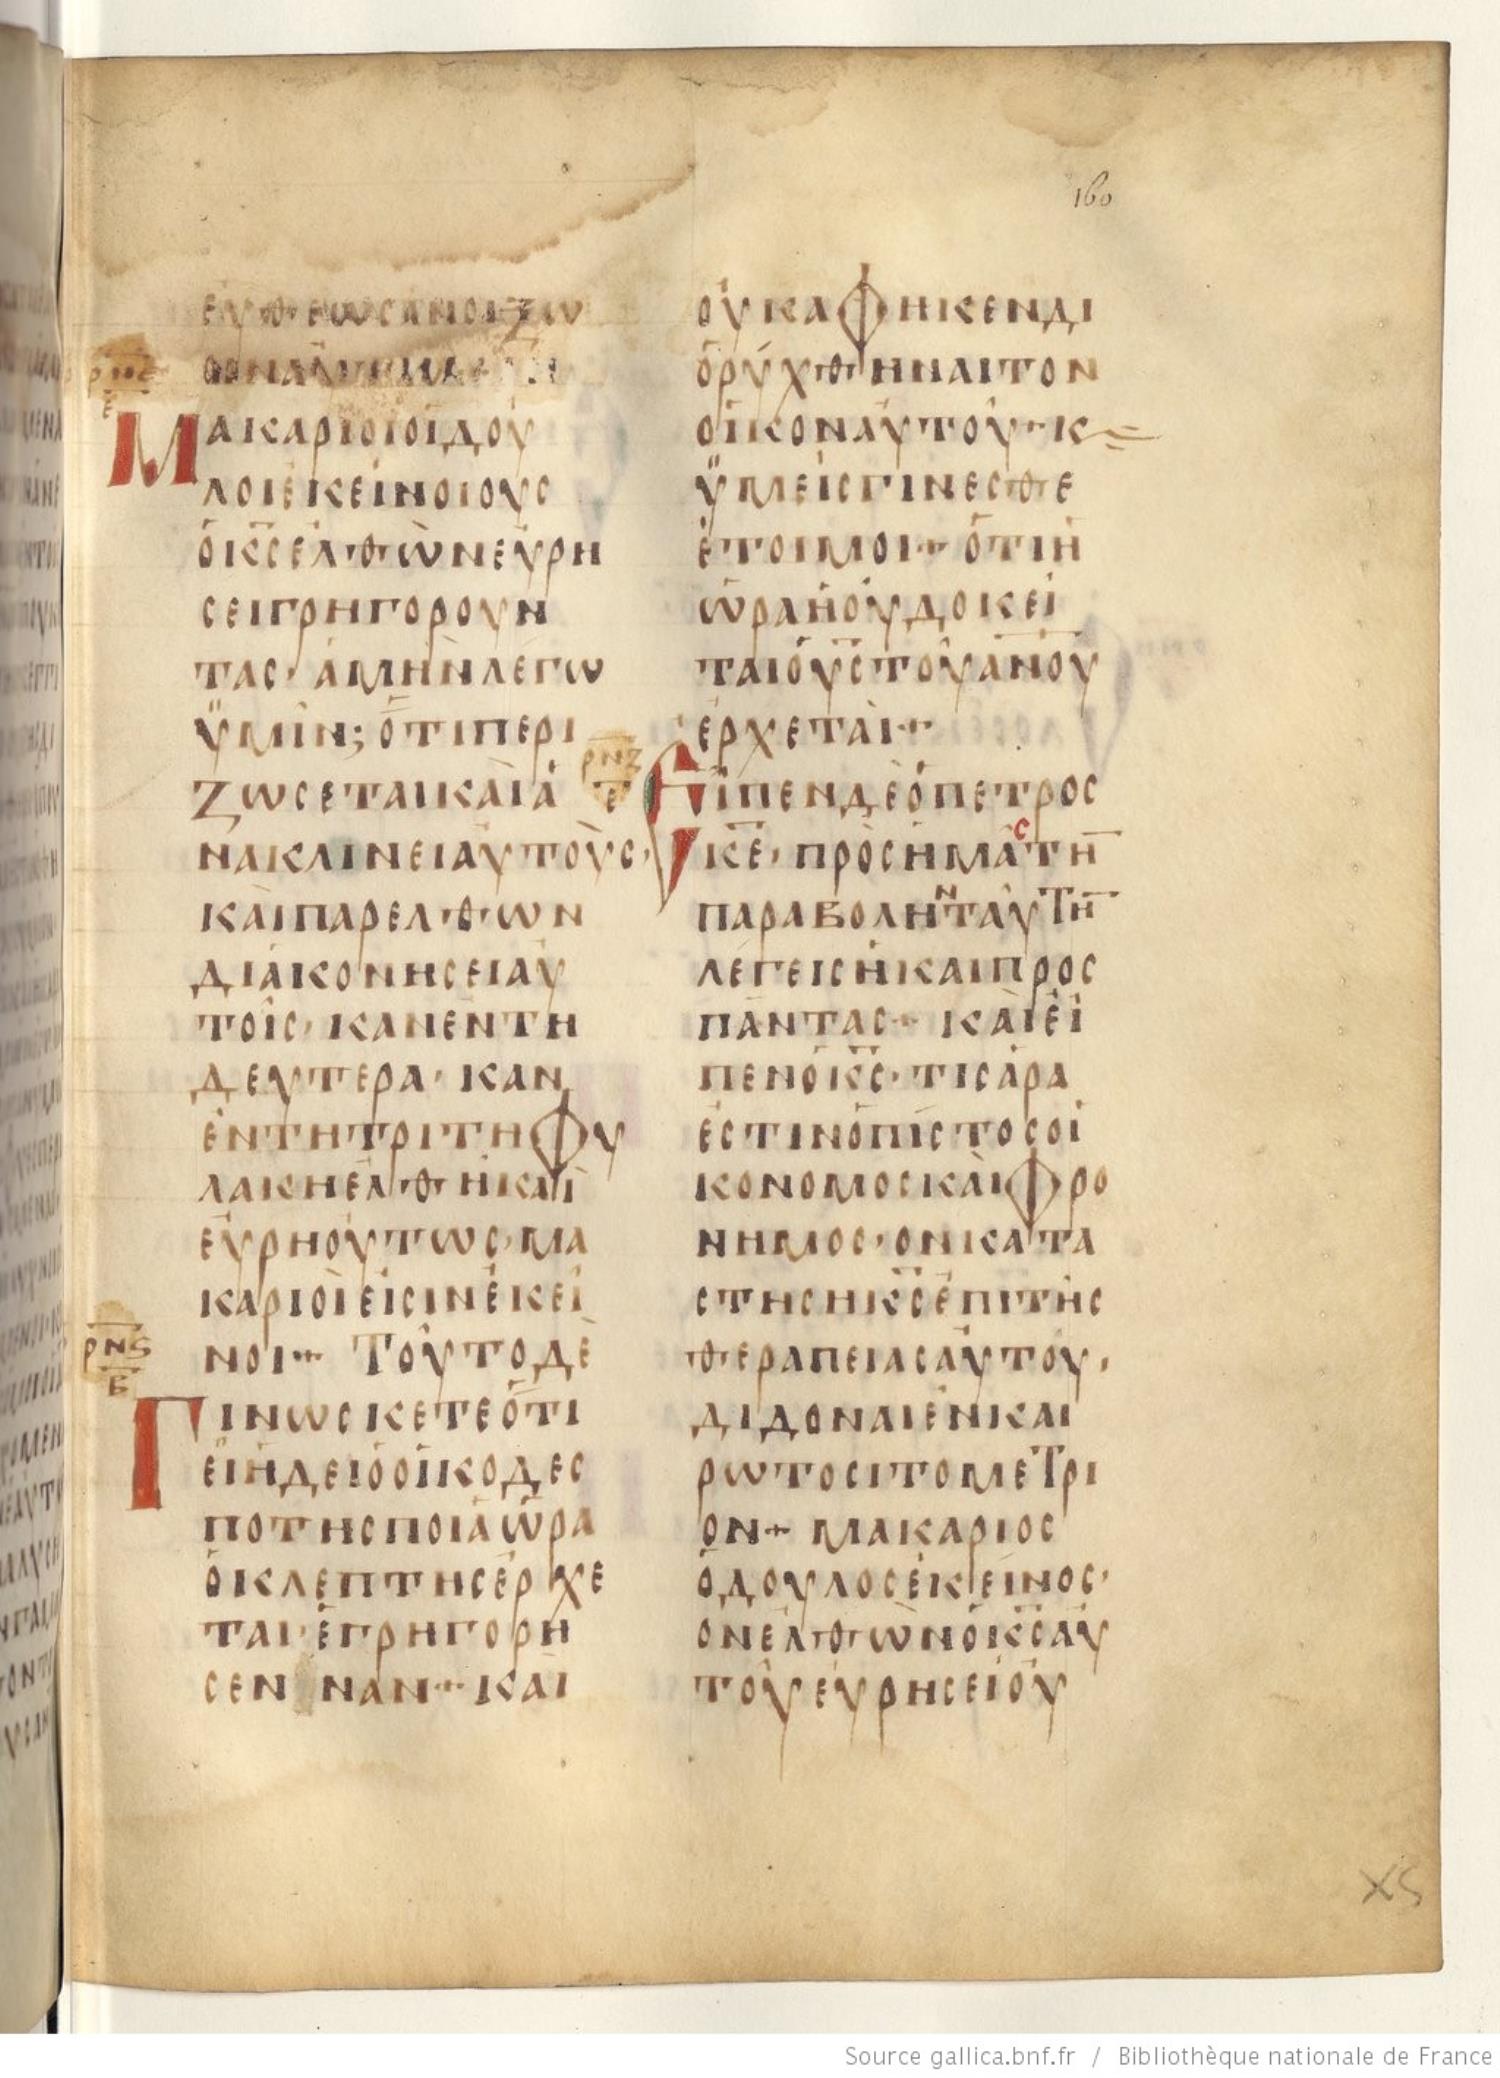 160
ΕΥΘΕΩΣΑΝΟΙΞΩ
ΜΑΚΑΡΙΟΙΟΙΔΟΥ
ΛΟΙΕΚΕΙΝΟΙΟΥΣ
ΟΚΣΕΛΘΩΝΕΥΡΗ
ΣΕΙΓΡΗΓΟΡΟΥΝ
ΤΑΣ· ΑΜΗΝΛΕΓΩ
ΫΜΙΝ; ΟΤΙΠΕΡΙ
ΖΩΣΕΤΑΙΚΑΙΑ
ΝΑΚΛΙΝΕΙΑΥΤΟΥΣ·
ΚΑΙΠΑΡΕΛΘΩΝ
ΔΙΑΚΟΝΗΣΕΙΑΥ
ΤΟΙΣ· ΚΑΝΕΝΤΗ
ΔΕΥΤΕΡΑ· ΚΑΝ
ΕΝΤΗΤΡΙΤΗΦΥ
ΛΑΚΗΕΛΘΗΚΑΙ
ΕΥΡΗΟΥΤΩΣ·ΜΑ
ΚΑΡΙΟΙΕΙΣΙΝΕΚΕΙ
ΡΝϚ
Β
ΝΟΙ·+ ΤΟΥΤΟΔΕ
ΓΙΝΩΣΚΕΤΕΟΤΙ
ΕΙΗΔΕΙΟΟΙΚΟΔΕΣ
ΠΟΤΗΣΠΟΙΑΩΡΑ
ΟΚΛΕΠΤΗΣΕΡΧΕ
ΤΑΙ·ΕΓΡΗΓΟΡΗ
ΣΕΝ ΝΑΝ·+ ΚΑΙ
ΟΥΚΑΦΗΚΕΝΔΙ
ΟΡΥΧΘΗΝΑΙΤΟΝ
ΟΙΚΟΝΑΥΤΟΥ·+Κ
ΫΜΕΙΣΓΙΝΕΣΘΕ
ΕΤΟΙΜΟΙ·+ ΟΤΙΗ
ΩΡΑΗΟΥΔΟΚΕΙ
ΤΑΙΟΥΣΤΟΥΑΝΟΥ
ΕΡΧΕΤΑΙ·+
ΡΝΖ
Ε
ΕΙΠΕΝΔΕΟΠΕΤΡΟΣ
ΚΕ· ΠΡΟΣΗΜΑΣΤΗ
ΠΑΡΑΒΟΛΗΝΤΑΥΤΗ
ΛΕΓΕΙΣΗΚΑΙΠΡΟΣ
ΠΑΝΤΑΣ·+ ΚΑΙΕΙ
ΠΕΝΟΚΣ· ΤΙΣΑΡΑ
ΕΣΤΙΝΟΠΙΣΤΟΣΟΙ
ΚΟΝΟΜΟΣΚΑΙΦΡΟ
ΝΗΜΟΣ·ΟΝΚΑΤΑ
ΣΤΗΣΗΚΣΕΠΙΤΗΣ
ΘΕΡΑΠΕΙΑΣΑΥΤΟΥ·
ΔΙΔΟΝΑΙΕΝΚΑΙ
ΡΩΤΟΣΙΤΟΜΕΤΡΙ
ΟΝ·+ ΜΑΚΑΡΙΟΣ
ΟΔΟΥΛΟΣΕΚΕΙΝΟΣ·
ΟΝΕΛΘΩΝΟΚΣΑΥ
ΤΟΥΕΥΡΗΣΕΙΟΥ
Source gallica.bnf.fr / Bibliothèque nationale de France